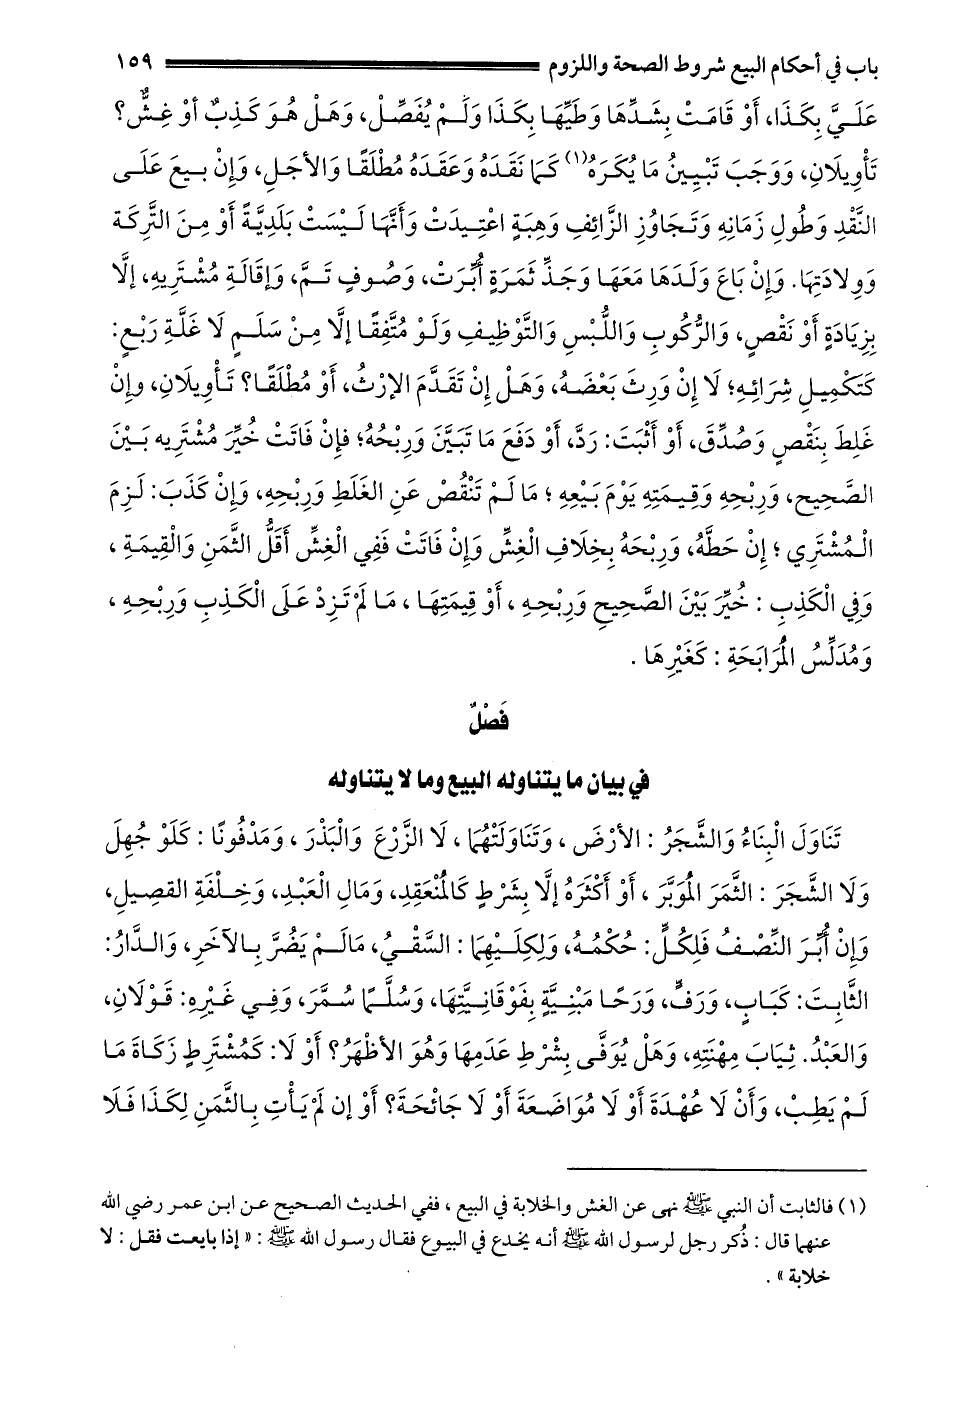 باب في أحكام البيع شروط الصحة واللزوم ١٥٩
عَلَيَّ بِكَذَا، أَوْ قَامَتْ بِشَدِّهَا وَطَيِّهَا بِكَذَا وَلَمْ يُفَصِّلْ، وَهَلْ هُوَ كَذِبٌ أَوْ غِشٌّ؟
تَأْوِيلَانِ، وَوَجَبَ تَبْيِينُ مَا يُكْرَهُ(١) كَمَا نَقَدَهُ وَعَقَدَهُ مُطْلَقًا وَالأَجَلِ، وَإِنْ بِيعَ عَلَى
النَّقْدِ وَطُولِ زَمَانِهِ وَتَجَاوُزِ الزَّائِفِ وَهِبَةٍ اعْتِيدَتْ وَأَنَّهَا لَيْسَتْ بَلَدِيَّةً أَوْ مِنَ التَّرِكَةِ
وَوِلَادَتِهَا. وَإِنْ بَاعَ وَلَدَهَا مَعَهَا وَجَذِّ ثَمَرَةٍ أُبِّرَتْ، وَصُوفٍ تَمَّ، وَإِقَالَةِ مُشْتَرِيهِ، إِلَّا
بِزِيَادَةٍ أَوْ نَقْصٍ، وَالرُّكُوبِ وَاللُّبْسِ وَالتَّوْظِيفِ وَلَوْ مُتَّفِقًا إلَّا مِنْ سَلَمٍ لَا غَلَّةِ رَبْعٍ:
كَتَكْمِيلِ شِرَائِهِ؛ لَا إِنْ وَرِثَ بَعْضَهُ، وَهَلْ إِنْ تَقَدَّمَ الإِرْثُ، أَوْ مُطْلَقًا؟ تَأْوِيلَانِ، وإِنْ
غَلِطَ بِنَقْصٍ وَصُدِّقَ، أَوْ أَثْبَتَ: رَدَّ، أَوْ دَفَعَ مَا تَبَيَّنَ وَرِبْحُهُ؛ فإِنْ فَاتَتْ خُيِّرَ مُشْتَرِيه بَيْنَ
الصَّحِيحِ، وَرِبْحِهِ وَقِيمَتِهِ يَوْمَ بَيْعِهِ ؛ مَا لَمْ تَنْقُصْ عَنِ الغَلَطِ وَرِبْحِهِ، وَإِنْ كَذَبَ: لَزِمَ
الْمُشْتَرِي ؛ إِنْ حَطَّهُ، وَرِبْحَهُ بِخِلَافِ الْغِشِّ وَإِنْ فَاتَتْ فَفِي الْغِشِّ أَقَلُّ الثَّمَنِ وَالْقِيمَةِ ،
وَفِي الْكَذِبِ : خُيِّرَ بَيْنَ الصَّحِيحِ وَرِبْحِهِ ، أَوْ قِيمَتِهَا ، مَا لَمْ تَزِدْ عَلَى الْكَذِبِ وَرِبْحِهِ ،
وَمُدَلِّسُ الْمُرَابَحَةِ : كَغَيْرِهَا .
فَصْلٌ
في بيان ما يتناوله البيع وما لا يتناوله
تَنَاوَلَ الْبِنَاءُ وَالشَّجَرُ : الأَرْضَ ، وَتَنَاوَلَتْهُمَا ، لَا الزَّرْعَ وَالْبَذْرَ ، وَمَدْفُونًا : كَلَوْ جُهِلَ
وَلَا الشَّجَرَ : الثَّمَرَ الْمُؤَبَّرَ ، أَوْ أَكْثَرَهُ إِلَّا بِشَرْطٍ كَالْمُنْعَقِدِ، وَمَالِ الْعَبْدِ، وَخِلْفَةِ القَصِيلِ،
وَإِنْ أُبِّرَ النِّصْفُ فَلِكُلٍّ: حُكْمُهُ، وَلِكِلَيْهِمَا : السَّقْيُ، مَالَمْ يَضُرَّ بِالآخَرِ، وَالدَّارُ:
الثَّابِتَ: كَبَابٍ، وَرَفٍّ، وَرَحًا مَبْنِيَّةٍ بِفَوْقَانِيَّتِهَا، وَسُلَّمًا سُمِّرَ، وَفِي غَيْرِهِ: قَوْلَانِ،
وَالعَبْدُ. ثِيَابَ مِهْنَتِهِ، وَهَلْ يُوَفَّى بِشَرْطِ عَدَمِهَا وَهُوَ الأَظْهَرُ؟ أَوْ لَا: كَمُشْتَرِطٍ زَكَاةَ مَا
لَمْ يَطِبْ، وَأَنْ لَا عُهْدَةَ أَوْ لَا مُوَاضَعَةَ أَوْ لَا جَائِحَةَ؟ أَوْ إِن لَمْ يَأْتِ بِالثَّمَنِ لِكَذَا فَلَا
(١) فالثابت أن النبي ﷺ نهى عن الغش والخلابة في البيع ، ففي الحديث الصحيح عن ابن عمر رضي الله
عنهما قال : ذُكر رجل لرسول الله ﷺ أنه يخدع في البيوع فقال رسول الله ﷺ : « إذا بايعت فقل : لا
خلابة » .